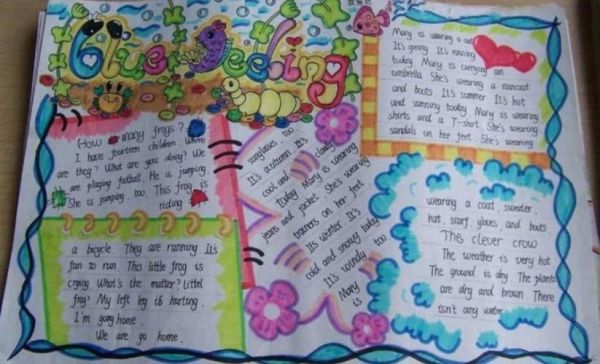 Blue Feeling
How many frogs?
I have fourteen children Where
are they? What are you doing? We
are playing futball. He is jumping.
She is jumping too. This frog is
riding
a bicycle. They are running It's
fun to run. This little frog is
crying What's the matter? Littel
frog? My left leg is hurting.
I'm going home.
We are go home.
Mary is wearing a
It's spring It's raining
today Mary is carrying an
umbrella. She's wearing a raincoat
and boots It's summer It's hot
and sunning today Mary is wearing
shirts and a T-shirt. She's wearing
sandals on her feet. She's wearing
sunglasses too
It's autumn It's
cool and cloudy
today Mary is wearing
jeans and jacket She's wearing
trainers on her feet
It's winter It's
cold and snowy today
It's windy too
Mary
is
wearing a coat, sweater,
hat, scarf, gloves, and boots
The clever crow
The weather is very hot
The ground is dry The plants
are dry and brown There
isn't any water